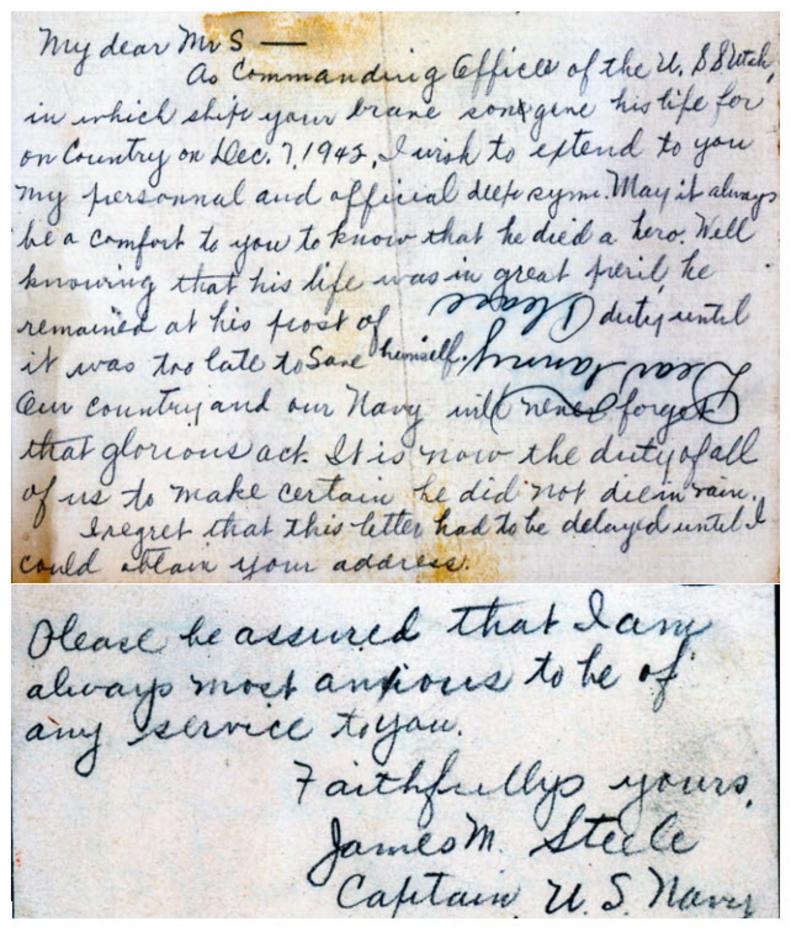 My dear Mr S —
As Commanding Officer of the U.S.S Utah,
in which ship your brave son gave his life for
on Country on Dec. 7, 1942, I wish to extend to you
my personnal and official deep sym. May it always
be a comfort to you to know that he died a hero. Well
knowing that his life was in great peril, he
remained at his post of duty until
Please
it was too late to save himself.
Dear
Our country and our Navy will never forget
that glorious act. It is now the duty of all
of us to make certain he did not die in vain.
I regret that this letter had to be delayed until I
could obtain your address.
Please be assured that I am
always most anxious to be of
any service to you.
Faithfullys yours,
James M. Steele
Captain U.S. Navy